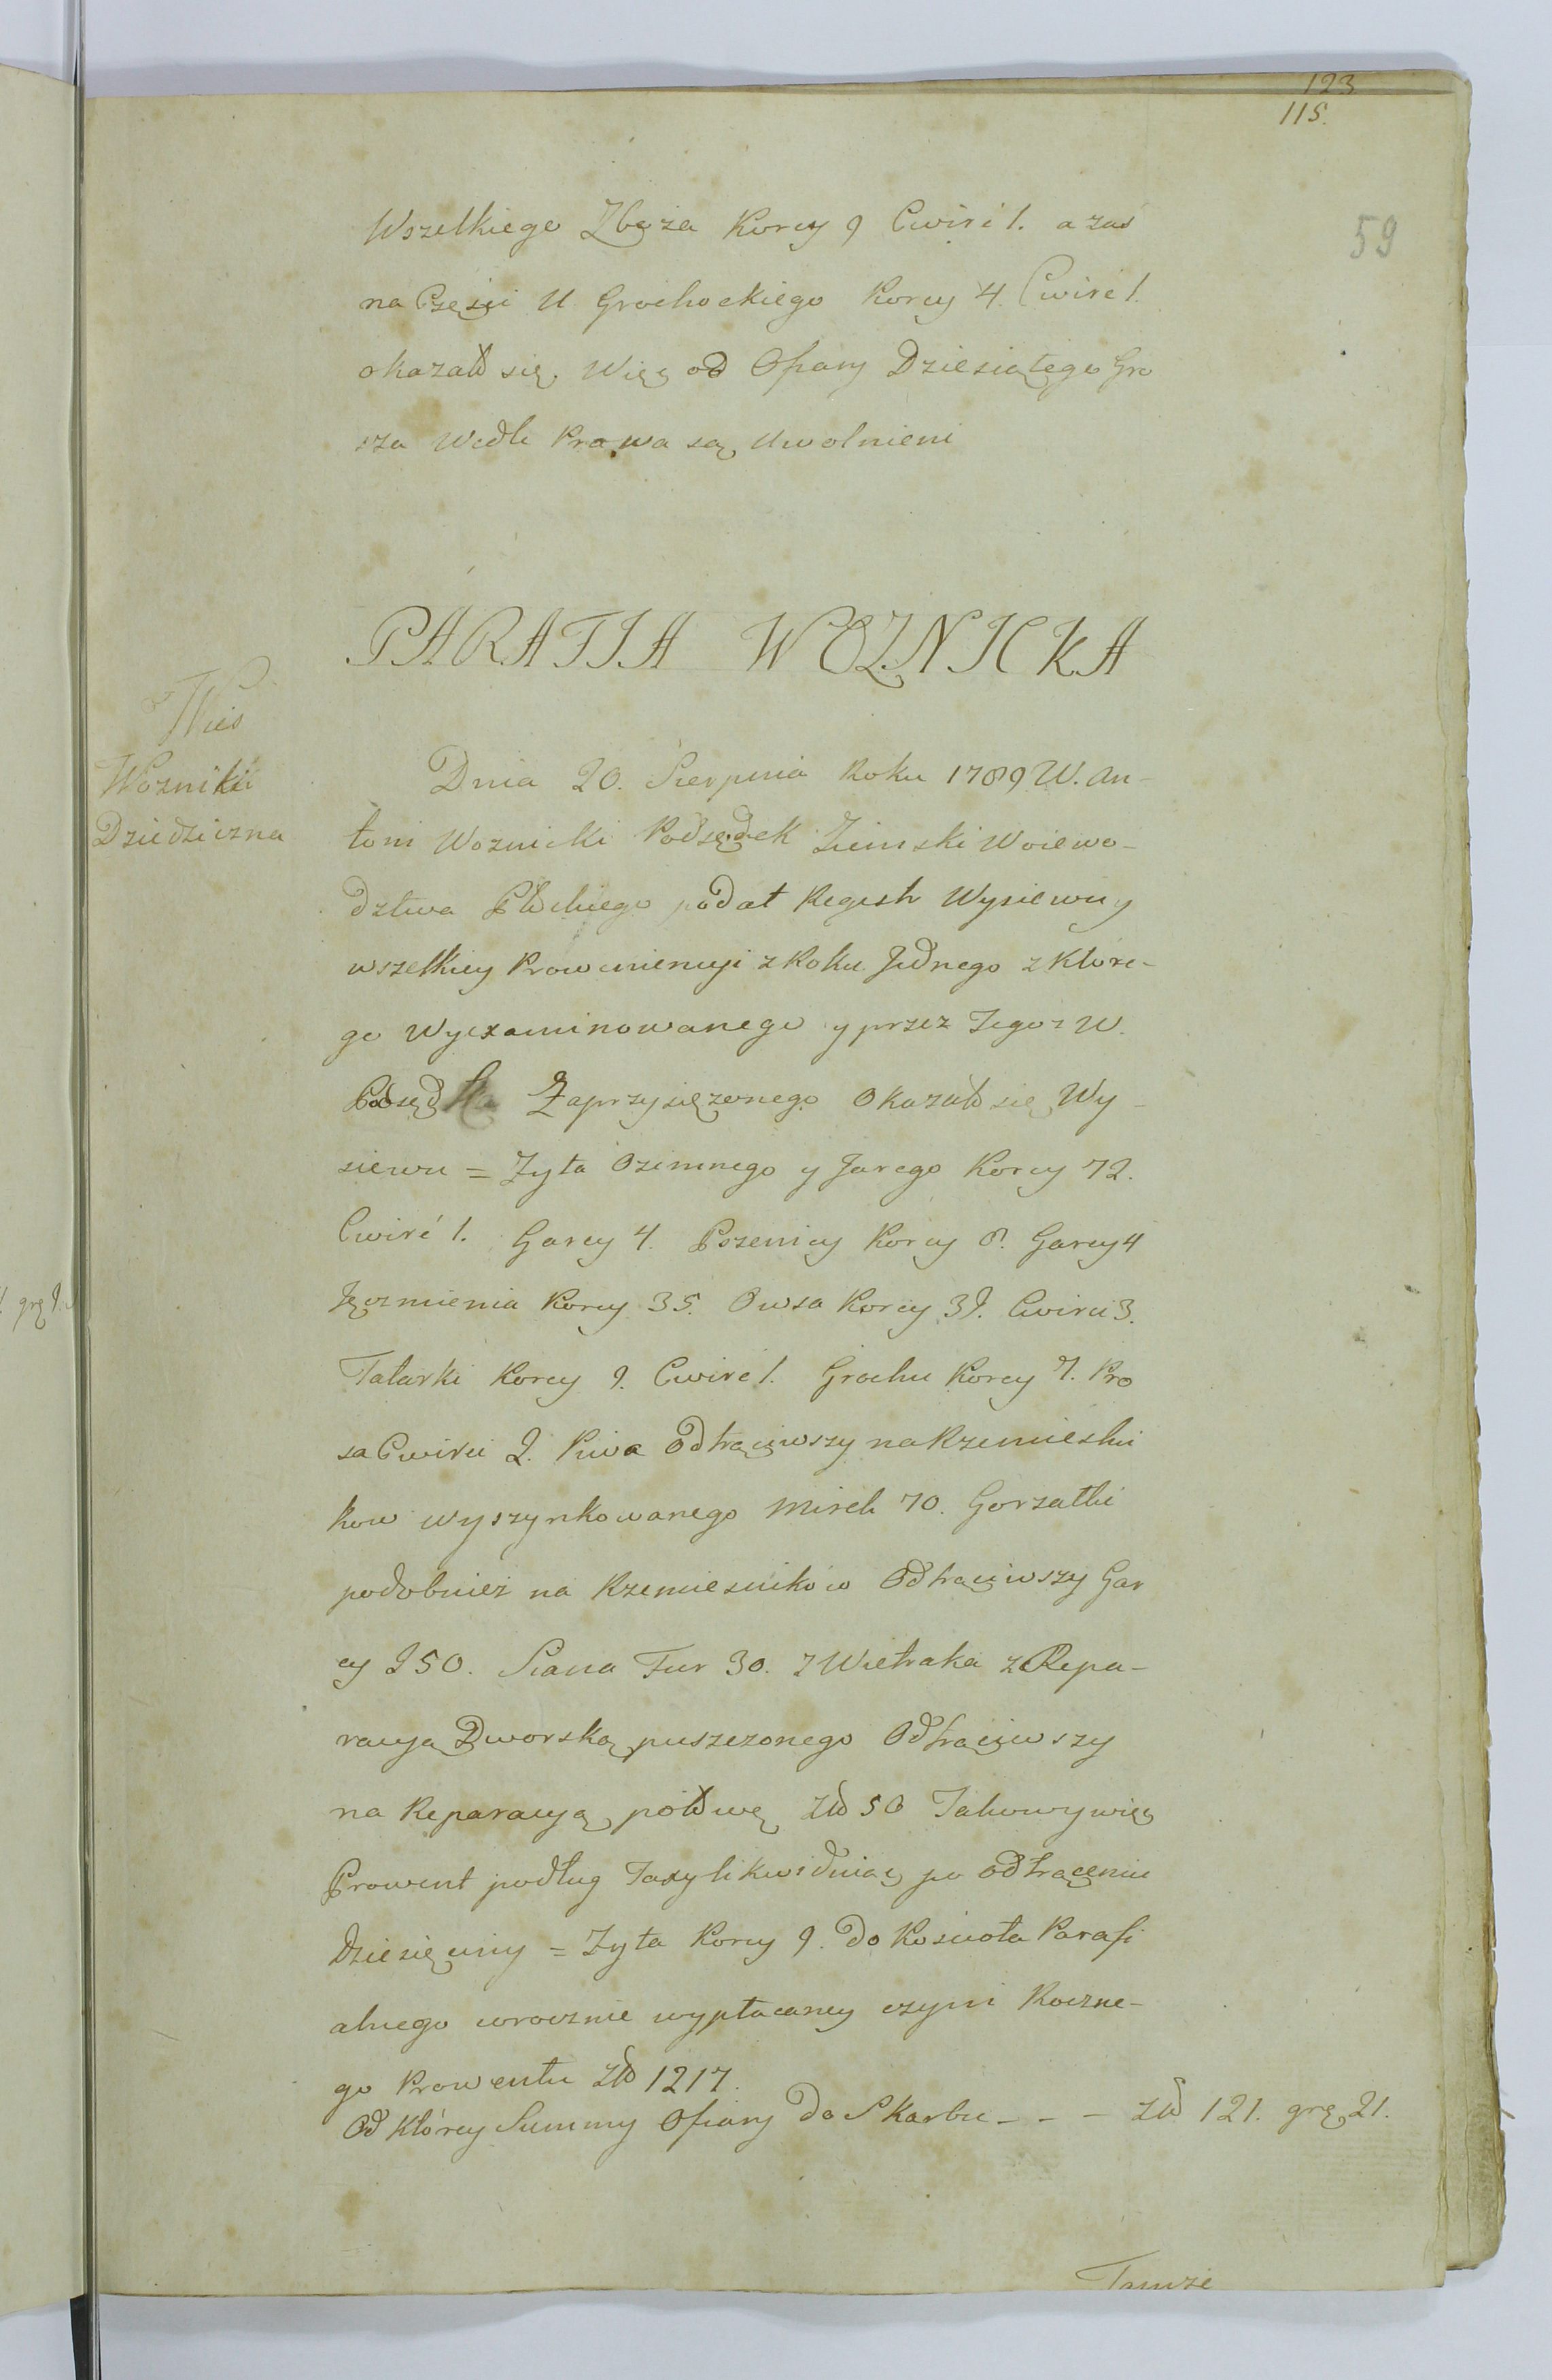 123
115.
59
Wszelkiego Zboża Korcy 9 Cwirć 1. a zaś
na Części U Grochockiego Korcy 4. Cwirć 1.
okazało się. Więc od Ofiary Dziesiątego Gro
sza Wedle Prawa są Uwolnieni
PARAFIA WOZNICKA
Wieś
Wozniki
Dziedziczna
Dnia 20. Sierpnia Roku 1789 W. An-
toni Woznicki Podsędek Ziemski Woiewo-
dztwa Płockiego podał Regestr Wysiewu y
wszelkiey Proweniencyi z Roku Jednego z Które-
go Wyexaminowanego y przez Tegoz W.
Podsędka Zaprzysięzonego Okazało się Wy-
siewu = Zyta Ozimnego y Jarego Korcy 72.
Cwirć 1. Garcy 4. Pszenicy Korcy 8. Garcy 4
Jęczmienia Korcy 35. Owsa Korcy 32. Cwirci 3.
Tatarki Korcy 9. Cwirć 1. Grochu Korcy 7. Pro
sa Cwirci 2. Piwa Odtrąciwszy na Rzemieslni
kow wyszynkowanego Mirek 70. Gorzałki
podobniez na Rzemieslnikow Odtrąciwszy Gar
cy 250. Siana Fur 30. Z Wietraka z Repa-
racyą Dworską puszczonego Odtrąciwszy
na Reparacyą połowę Zło 50 Takowy więc
Prowent podług Taxy likwiduiąc po odtrąceniu
Dziesięciny = Zyta Korcy 9. do Kościoła Parafi
alnego wrocznie wypłacaney czyni Roczne-
go Prowentu Zło 1217.
Od Którcy Summy Ofiary Do Skarbu - - - Zło 121. grę 21.
Tamże